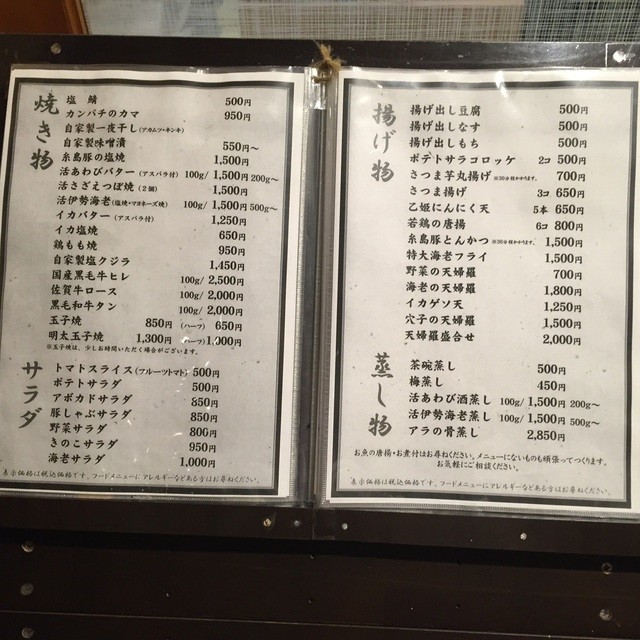 焼き物
塩 鯖 500円
カンパチのカマ 950円
自家製一夜干し(アカムツ・キンキ)
自家製味噌漬 550円～
糸島豚の塩焼 1,500円
活あわびバター (アスパラ付) 100g/ 1,500円 200g～
活さざえつぼ焼 (2個) 1,500円
活伊勢海老(塩焼・マヨネーズ焼) 100g/ 1,500円 500g～
イカバター (アスパラ付) 1,250円
イカ塩焼 650円
鶏もも焼 950円
自家製塩クジラ 1,450円
国産黒毛牛ヒレ 100g/ 2,500円
佐賀牛ロース 100g/ 2,000円
黒毛和牛タン 100g/ 2,000円
玉子焼 850円 (ハーフ) 650円
明太玉子焼 1,300円 (ハーフ) 1,000円
※玉子焼は、少しお時間いただく場合がございます。
サラダ
トマトスライス(フルーツトマト) 500円
ポテトサラダ 500円
アボカドサラダ 850円
豚しゃぶサラダ 850円
野菜サラダ 800円
きのこサラダ 950円
海老サラダ 1,000円
表示価格は税込価格です。フードメニューにアレルギーなどある方はお尋ねください。
揚げ物
揚げ出し豆腐 500円
揚げ出しなす 500円
揚げ出しもち 500円
ポテトサラコロッケ 2コ 500円
さつま芋丸揚げ ※30分程かかります。 700円
さつま揚げ 3コ 650円
乙姫にんにく天 5本 650円
若鶏の唐揚 6コ 800円
糸島豚とんかつ ※30分程かかります。 1,500円
特大海老フライ 1,500円
野菜の天婦羅 700円
海老の天婦羅 1,800円
イカゲソ天 1,250円
穴子の天婦羅 1,500円
天婦羅盛合せ 2,000円
蒸し物
茶碗蒸し 500円
梅蒸し 450円
活あわび酒蒸し 100g/ 1,500円 200g～
活伊勢海老蒸し 100g/ 1,500円 500g～
アラの骨蒸し 2,850円
お魚の唐揚・お煮付はお尋ねください。メニューにないものも頑張ってつくります。
お気軽にご相談ください。
表示価格は税込価格です。フードメニューにアレルギーなどある方はお尋ねください。